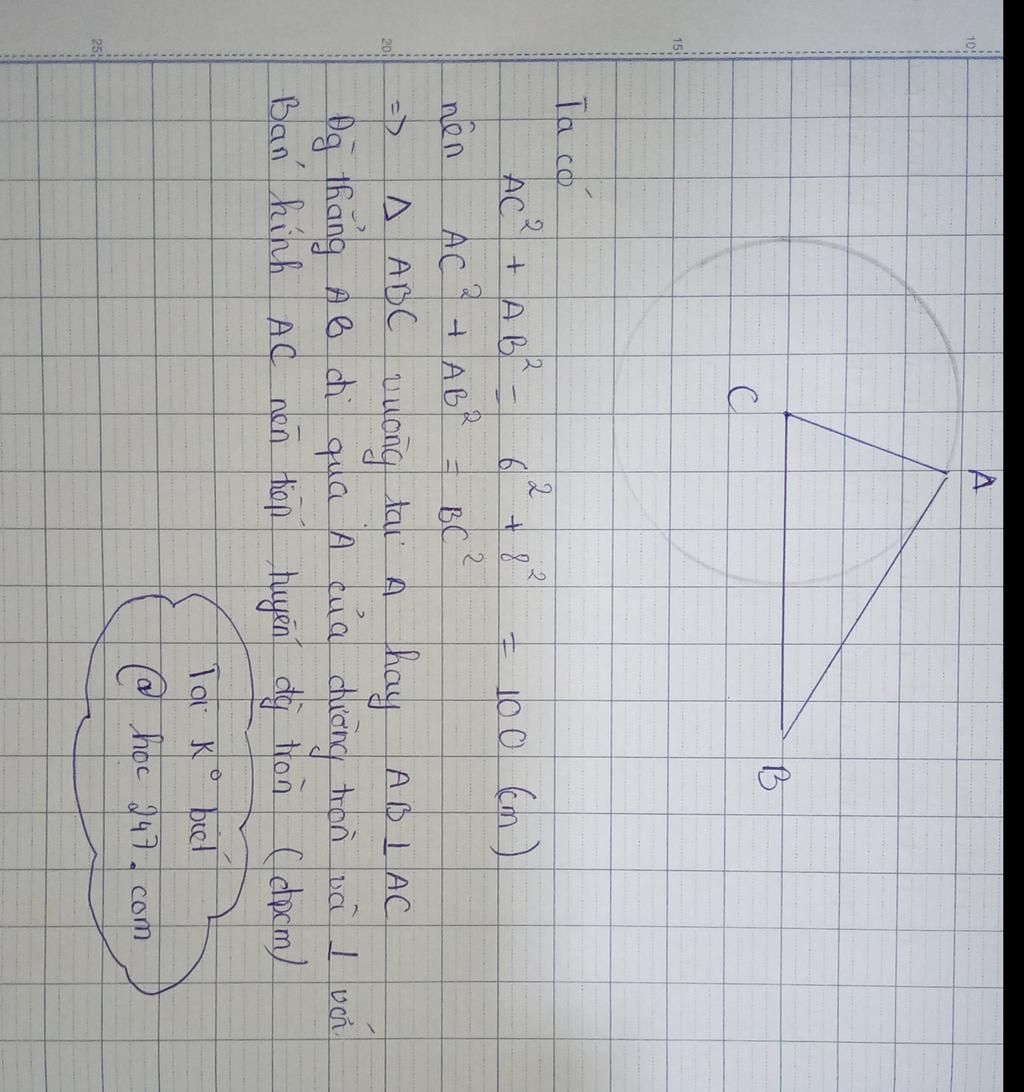 10
15
20
25
A
C
B
Ta có
AC² + AB² = 6² + 8² = 100 (cm)
nên AC² + AB² = BC²
=> Δ ABC vuông tại A hay AB ⊥ AC
Đg thẳng AB đi qua A của đường tròn và ⊥ với
Bán kính AC nên tiếp tuyến đg tròn (đpcm)
Tôi K° biết
@ hoc 247. com